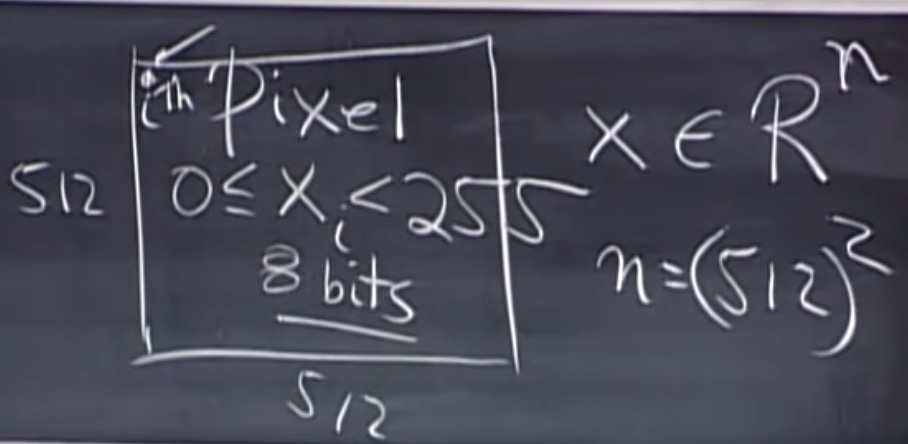 ith pixel
512
0 ≤ xᵢ < 255
8 bits
512
x ∈ Rⁿ
n=(512)²